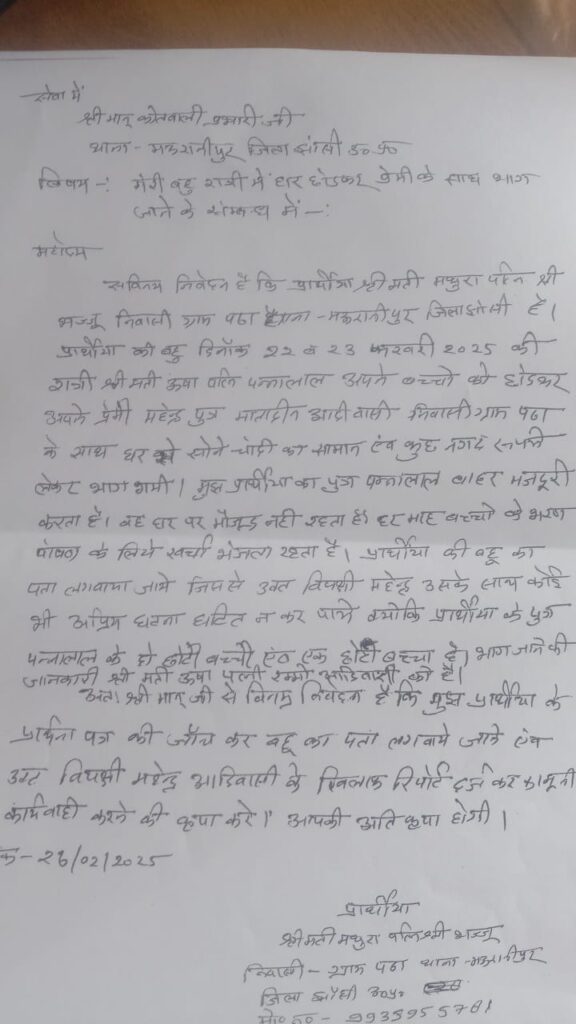 सेवा में
श्रीमान् कोतवाली प्रभारी जी
थाना - मऊरानीपुर जिला झांसी उ० प्र०
विषय -: मेरी बहु रात्री में घर छोडकर प्रेमी के साथ भाग
जाने के सम्बन्ध में -:
महोदय
सविनय निवेदन है कि प्रार्थीया श्रीमती मथुरा पत्नि श्री
भज्जू निवासी ग्राम पठा थाना - मऊरानीपुर जिला झांसी है।
प्रार्थीया की बहु दिनाँक 22 व 23 फरवरी 2025 की
रात्री श्रीमती ऊषा पत्नि पन्नालाल अपने बच्चो को छोडकर
अपने प्रेमी महेन्द्र पुत्र मातादीन आदीवासी निवासी ग्राम पठा
के साथ घर से सोने चांदी का सामान एंव कुछ नगद रूपये
लेकर भाग गयी। मुझ प्रार्थीया का पुत्र पन्नालाल बाहर मजदूरी
करता है। वह घर पर मौजूद नही रहता है। हर माह बच्चो के भरण
पोषण के लिये खर्चा भेजता रहता है। प्रार्थीया की बहू का
पता लगवाया जाये जिससे उक्त विपक्षी महेन्द्र उसके साथ कोई
भी अप्रिय घटना घटित न कर पाये क्योकि प्रार्थीया के पुत्र
पन्नालाल के दो छोटी बच्ची एंव एक छोटा बच्चा है। भाग जाने की
जानकारी श्री मती ऊषा पत्नी रम्मो आदिवासी को है।
अतः श्री मान् जी से विनम्र निवेदन है कि मुझ प्रार्थीया के
प्रार्थना पत्र की जाँच कर बहू का पता लगवाये जाने एंव
उक्त विपक्षी महेन्द्र आदिवासी के खिलाफ रिपोर्ट दर्ज कर कानूनी
कार्यवाही करने की कृपा करे। आपकी अति कृपा होगी।
क - 26/02/2025
प्रार्थीया
श्रीमती मथुरा पत्नि श्री भज्जू
निवासी - ग्राम पठा थाना - मऊरानीपुर
जिला झाँसी उ० प्र०
मो० न० - 9935955761